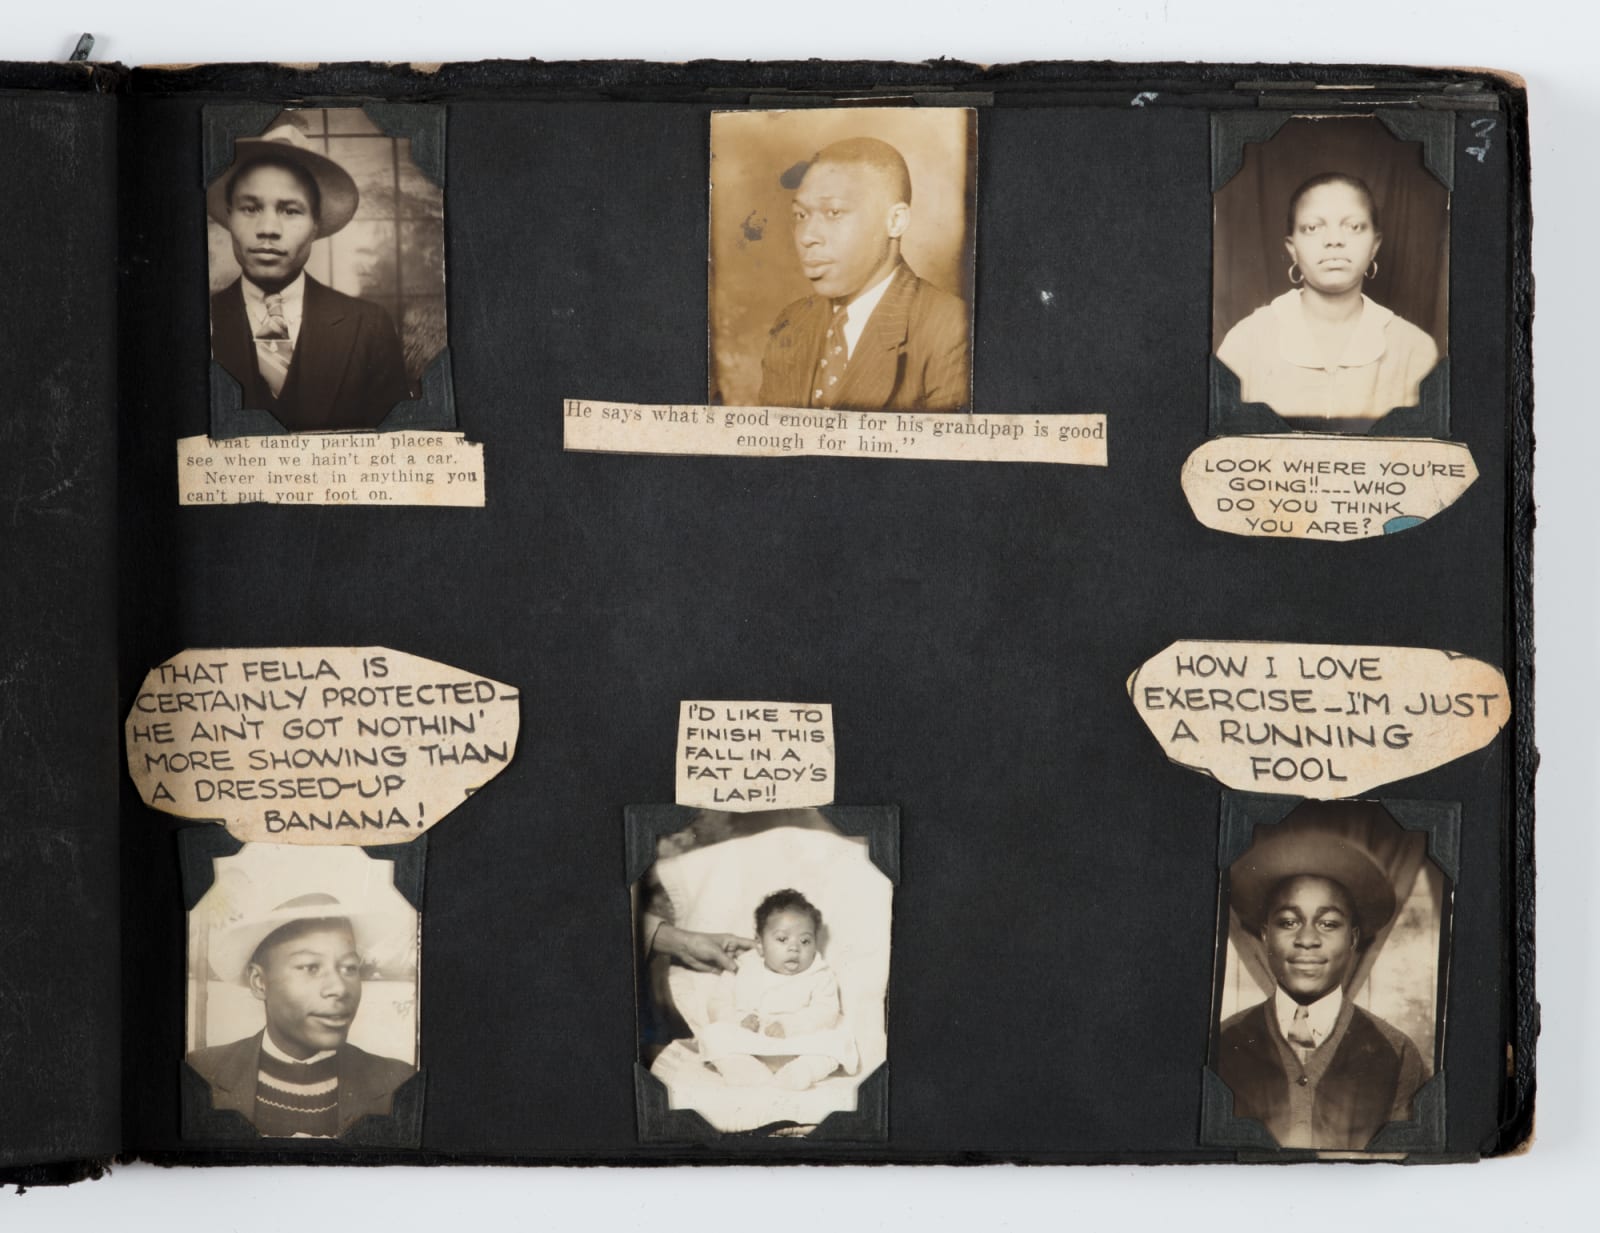 What dandy parkin' places we
see when we hain't got a car.
Never invest in anything you
can't put your foot on.
He says what's good enough for his grandpap is good
enough for him."
32
LOOK WHERE YOU'RE
GOING!!---WHO
DO YOU THINK
YOU ARE?
THAT FELLA IS
CERTAINLY PROTECTED—
HE AIN'T GOT NOTHIN'
MORE SHOWING THAN
A DRESSED-UP
BANANA!
I'D LIKE TO
FINISH THIS
FALL IN A
FAT LADY'S
LAP!!
HOW I LOVE
EXERCISE—I'M JUST
A RUNNING
FOOL